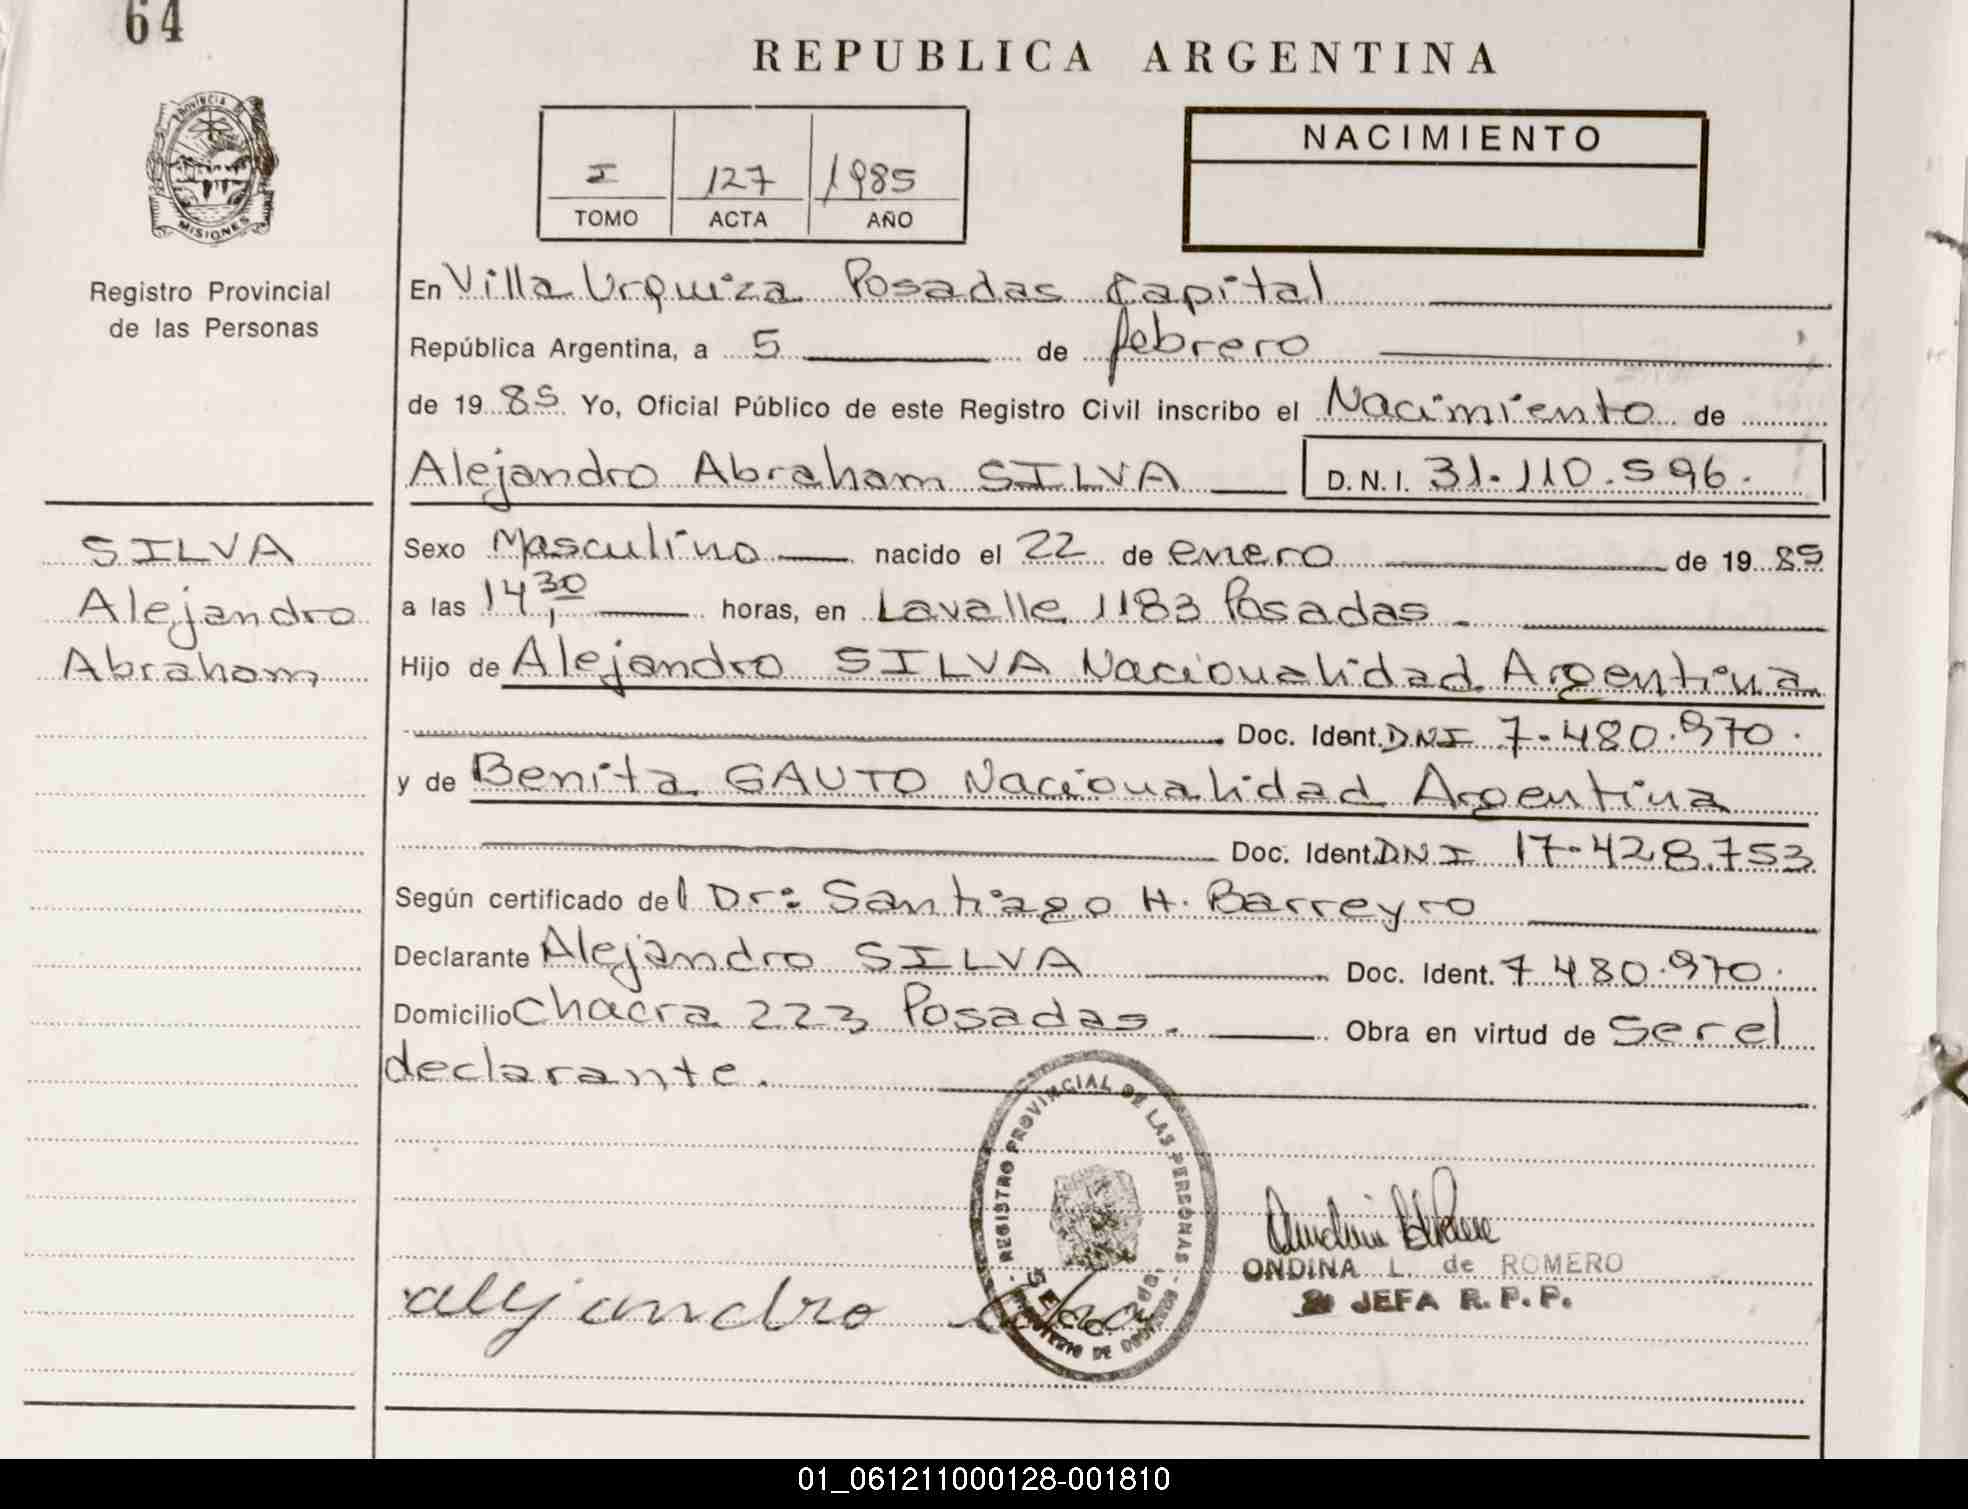 64
REPUBLICA ARGENTINA
PROVINCIA DE
MISIONES
Registro Provincial
de las Personas
I 127 1985
TOMO ACTA AÑO
NACIMIENTO
En Villa Urquiza Posadas Capital
República Argentina, a 5 de febrero
de 1985 Yo, Oficial Público de este Registro Civil inscribo el Nacimiento de
Alejandro Abraham SILVA D.N.I. 31.110.596.
SILVA
Alejandro
Abraham
Sexo Masculino nacido el 22 de enero de 1985
a las 14,30 horas, en Lavalle 1183 Posadas.
Hijo de Alejandro SILVA Nacionalidad Argentina
Doc. Ident. DNI 7.480.970.
y de Benita GAUTO Nacionalidad Argentina
Doc. Ident. DNI 17.428.753
Según certificado del Dr: Santiago H. Barreyro
Declarante Alejandro SILVA Doc. Ident. 7.480.970.
Domicilio Chacra 223 Posadas. Obra en virtud de Ser el
declarante.
REGISTRO PROVINCIAL DE LAS PERSONAS
ONDINA L. de ROMERO
JEFA R.P.P.
alejandro
01_061211000128-001810